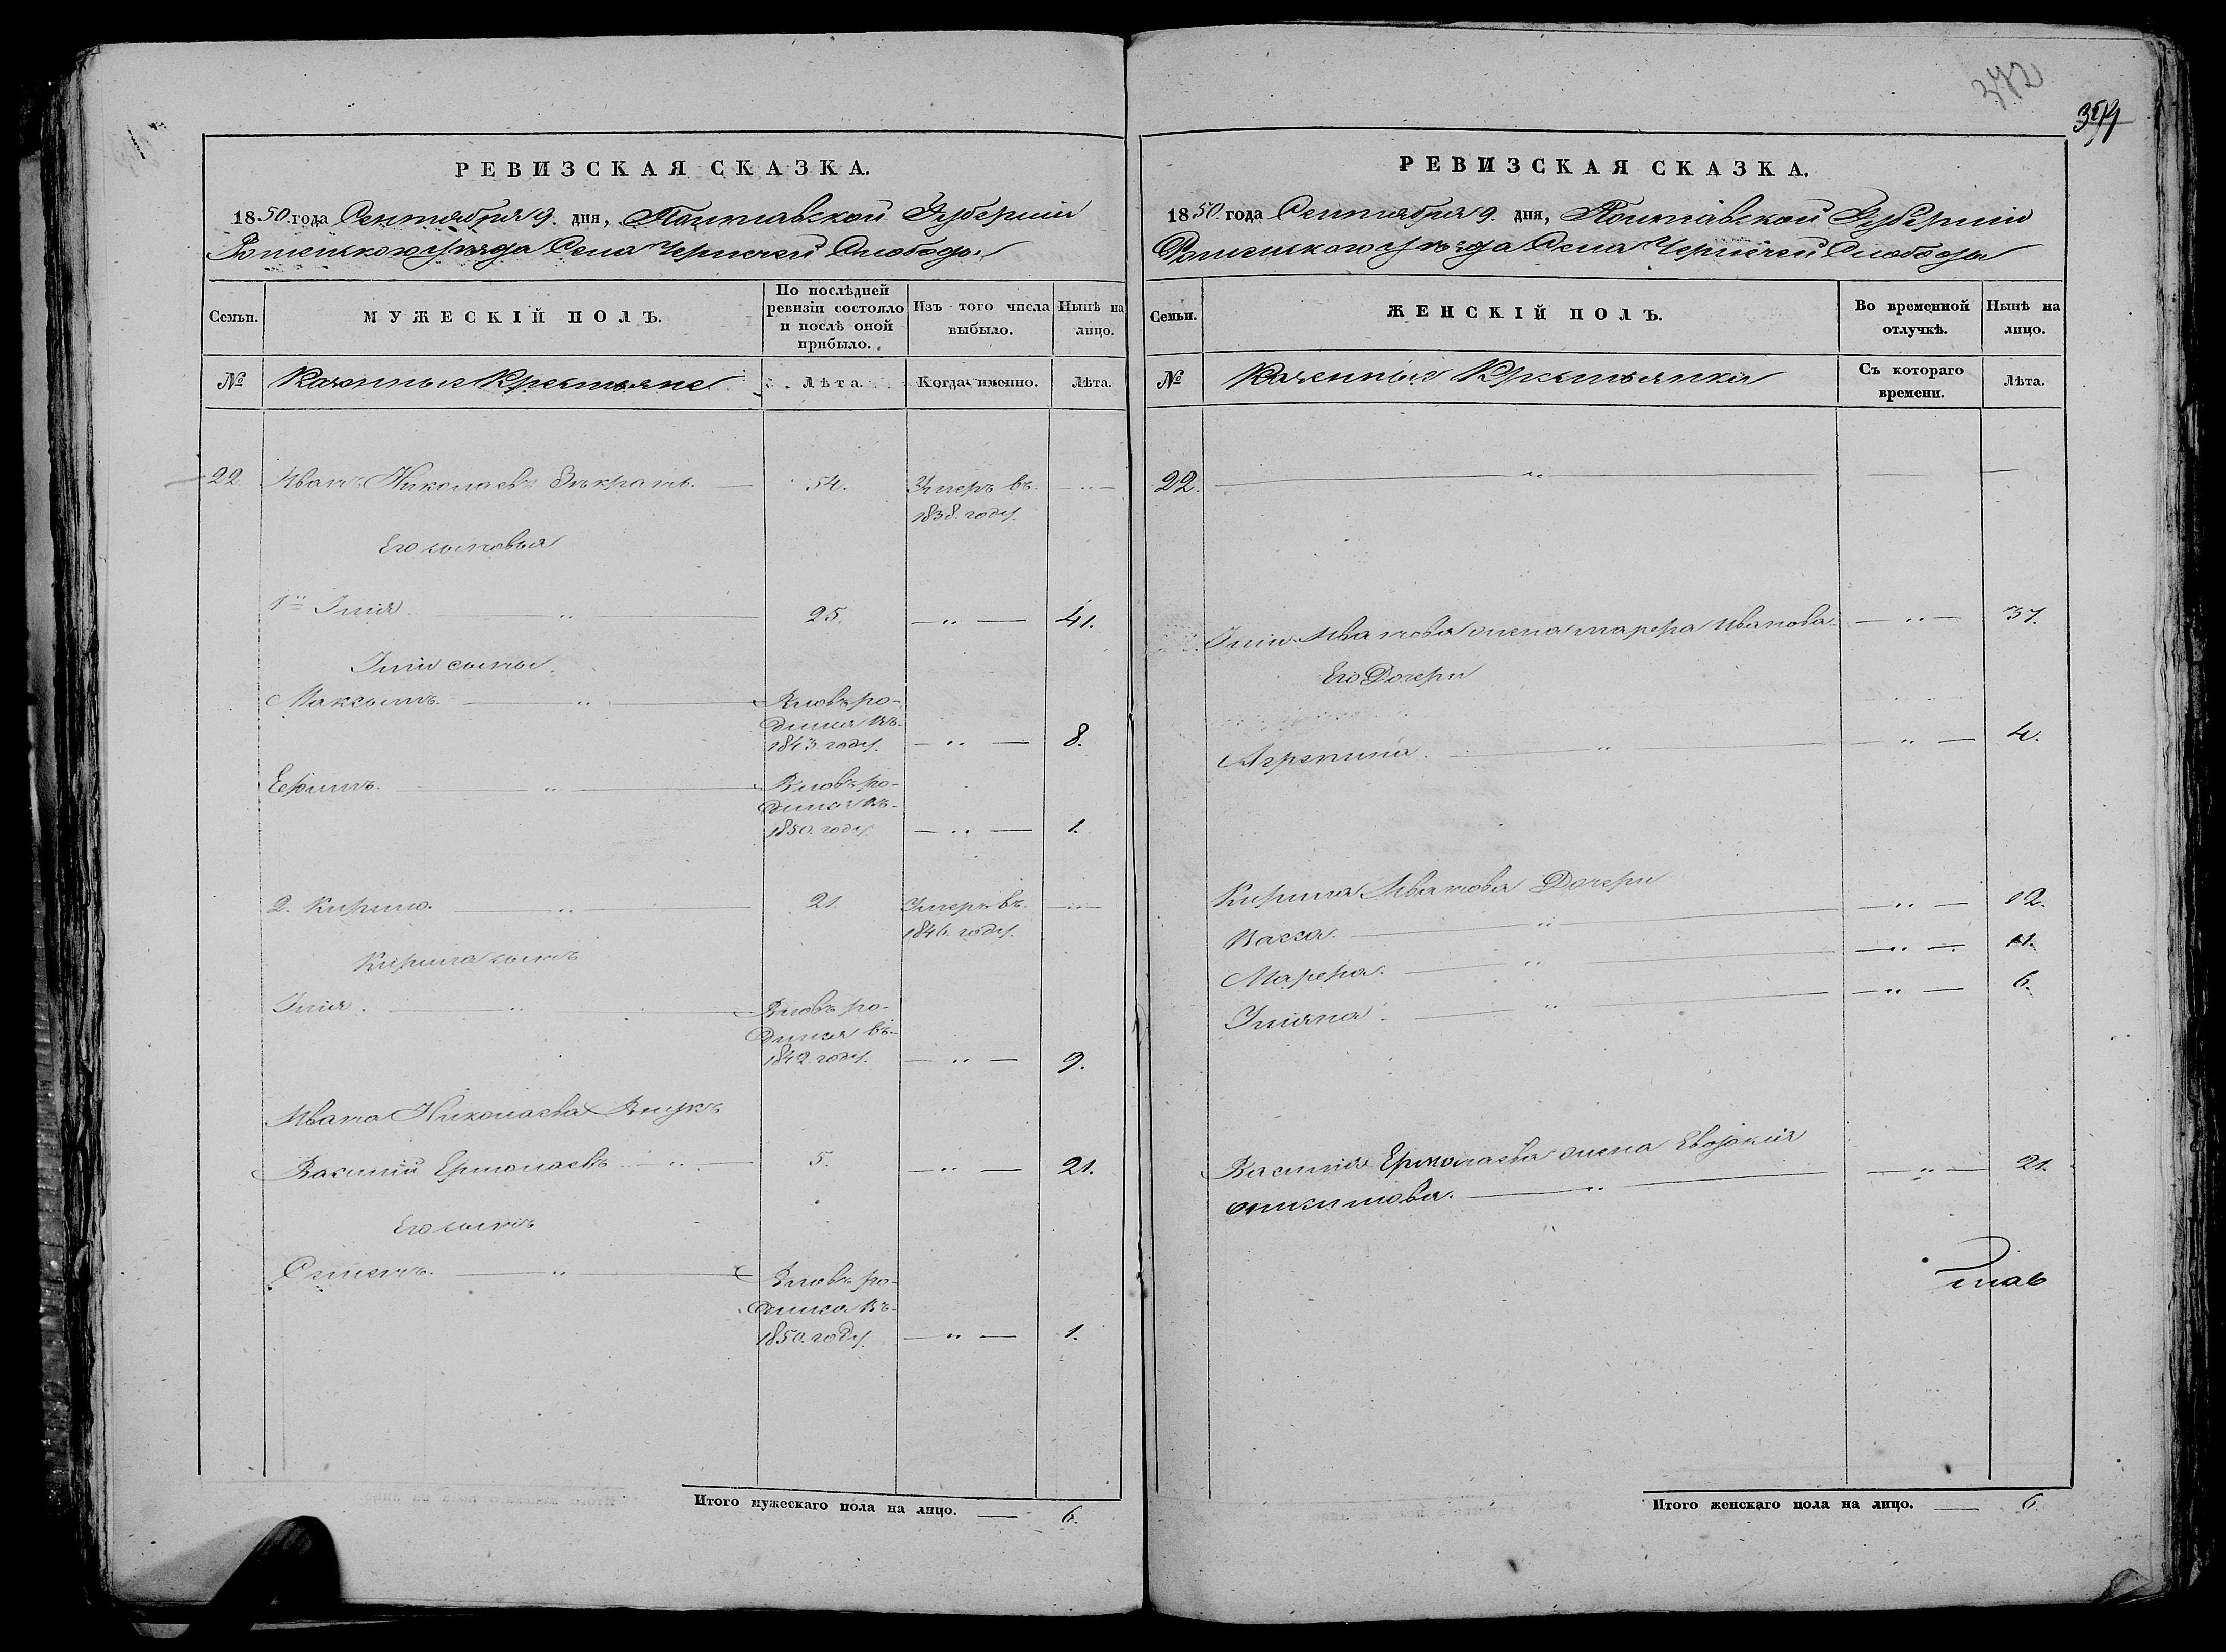 РЕВИЗСКАЯ СКАЗКА.
1850 года Сентября 9. дня, Полтавской Губерніи
Роменского уѣзда Села Чернечей Слободы
Семьи.
МУЖЕСКІЙ ПОЛЪ.
По послѣдней ревизіи состояло и послѣ оной прибыло.
Изъ того числа выбыло.
Нынѣ на лицо.
№
Казенные Крестьяне
Лѣта.
Когда именно.
Лѣта.
22. Иванъ Николаевъ 54. Умеръ въ
1838. году.
Его сыновья
1й Илія. 25. 41.
Иліи сыны
Максымъ. Вновь ро-
дился въ
1843 году. 8.
Ефимъ. Вновь ро-
дился въ
1850. году 1.
2. Кирило. 21. Умеръ въ
1846. году.
Кирила сынъ
Илія. Вновь ро-
дился въ
1842. году. 9.
Ивана Николаева Внукъ
Василій Ермолаевъ 5. 21.
Его сынъ
Семенъ. Вновь ро-
дился въ
1850. году. 1.
Итого мужескаго пола на лицо. 6.
372
РЕВИЗСКАЯ СКАЗКА.
1850. года Сентября 9. дня, Полтавской Губерніи
Роменского уѣзда Села Чернечей Слободы
Семьи.
ЖЕНСКІЙ ПОЛЪ.
Во временной отлучкѣ.
Нынѣ на лицо.
№
Казенные Крестьянки
Съ котораго времени.
Лѣта.
22.
Иліи Иванова жена Марфа Иванова 37.
Его Дочери
Агрепина. 4.
Кирила Иванова Дочери
Васса. 12.
Марфа. 11.
Уліяна. 6.
Василія Ермолаева жена Евдокія
21.
Итого женскаго пола на лицо. 6.